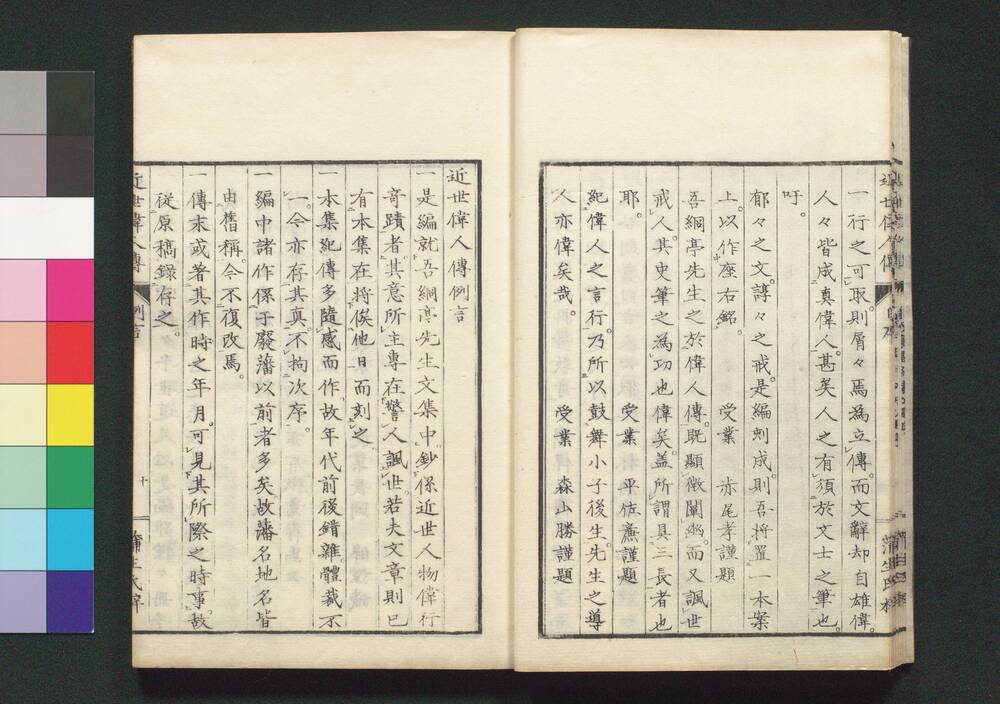 一行之可取。則屑々焉為立傳。而文辭却自雄偉。
人々皆成真偉人。甚矣人之有須於文士之筆也。
吁。
郁々之文。諄々之戒。是編刻成。則吾將置一本案
上。以作座右銘。 受業 赤尾孝謹題
吾絅亭先生之於偉人傳。既顯微闡幽。而又諷世
戒人。其史筆之為功也偉矣。蓋所謂具三長者也
耶。 受業 平佐㢘謹題
紀偉人之言行。乃所以鼓舞小子後生。先生之導
人亦偉矣哉。 受業 森山勝謹題
近世偉人傳例言
一是編就吾絅亭先生文集中。鈔係近世人物偉行
奇蹟者。其意所主專在警人諷世。若夫文章則已
有本集在。將俟他日而刻之
一本集紀傳多隨感而作。故年代前後錯雜。體裁不
一。今亦存其真。不拘次序。
一編中諸作。係于廢藩以前者多矣。故藩名地名皆
由舊稱。今不復改焉。
一傳末或著其作時之年月。可見其所際之時事。故
從原稿錄存之。
近世偉人傳
例言
十